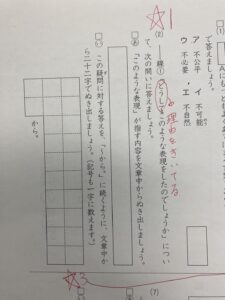 で答えましょう。
ア 不公平 イ 不可能
ウ 不必要 エ 不自然
☆1
(2) ――線①「どうしてこのような表現をしたのでしょうか」につい
て、次の問いに答えましょう。
理由をきいてる
あ 「このような表現」が指す内容を文章中からぬき出しましょう。
い この疑問に対する答えを、「〜から。」に続くように、文章中か
ら二十二字でぬき出しましょう。(記号も一字に数えます。)
から。
☆3
(7)